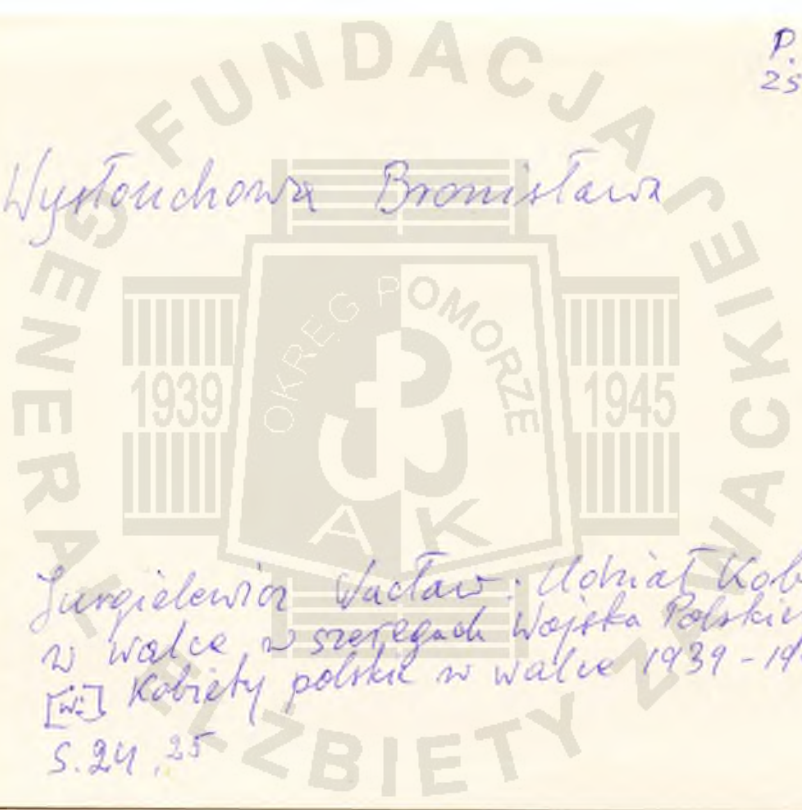 P.
25
Wysłouchowa Bronisława
Jurgielewicz Wacław: Udział Kob
w walce w szeregach Wojska Polskie
[w:] Kobiety polskie w walce 1939-19
S. 24, 25
FUNDACJA GENERAŁ ELŻBIETY ZAWACKIEJ
OKRĘG POMORZE
1939
1945
AK